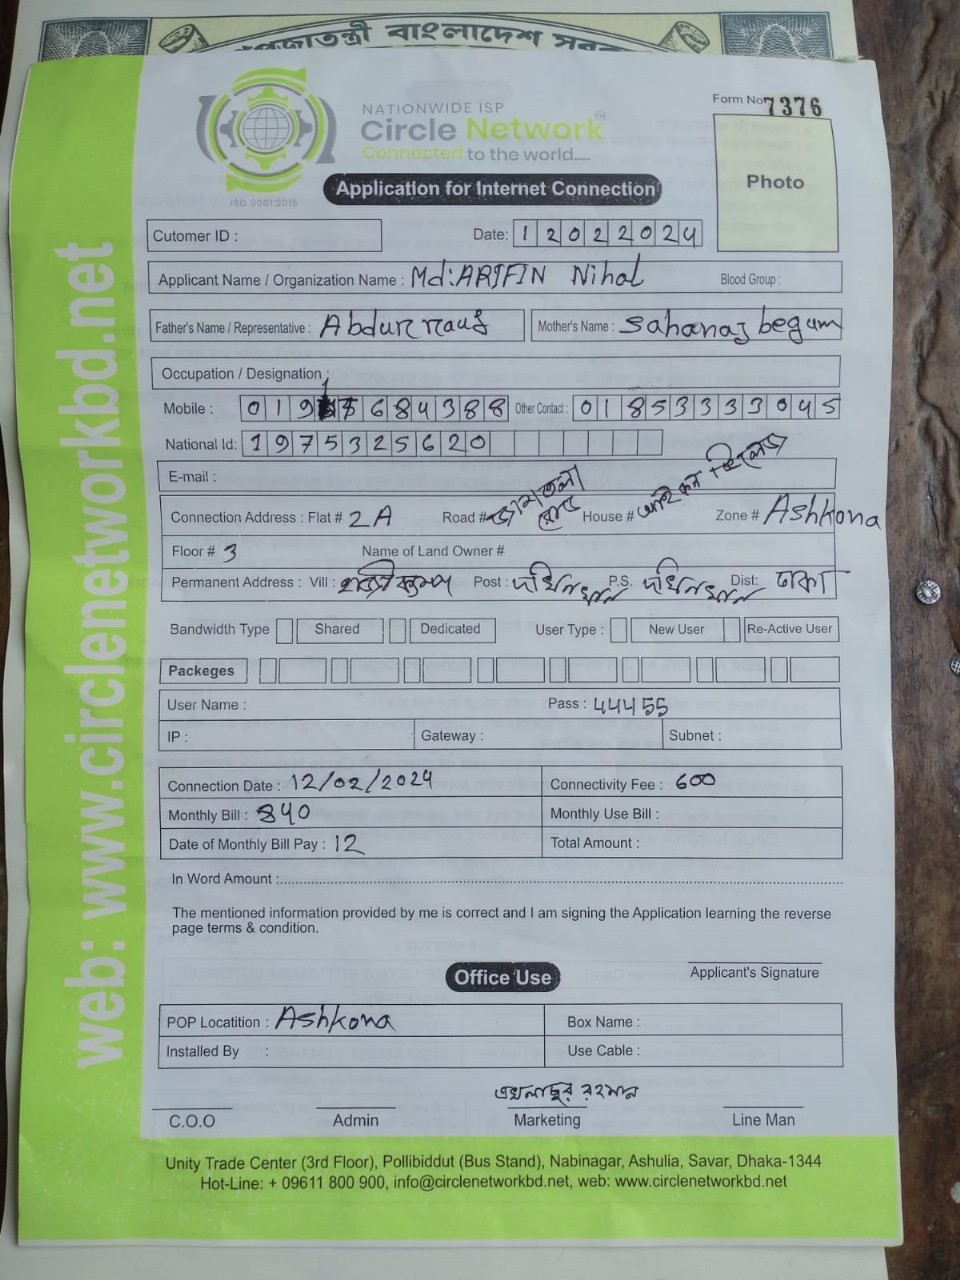 প্রজাতন্ত্রী বাংলাদেশ সরকার
NATIONWIDE ISP
Circle Network™
Connected to the world.....
ISO 9001:2015
Form No 7376
Photo
Application for Internet Connection
Cutomer ID :
Date: 12022024
Applicant Name / Organization Name : Md:ARIFIN Nihal Blood Group :
Father's Name / Representative : Abdur rauf Mother's Name : Sahanaj begum
Occupation / Designation :
Mobile : 019 684388 Other Contact : 01853333045
National Id: 1975325620
E-mail :
Connection Address : Flat # 2A Road # জামতলা রোড House # Zone # Ashkona
Floor # 3 Name of Land Owner #
Permanent Address : Vill : Post : দক্ষিনখান P.S. দক্ষিনখান Dist: ঢাকা
Bandwidth Type Shared Dedicated User Type : New User Re-Active User
Packeges
User Name : Pass : 44455
IP : Gateway : Subnet :
Connection Date : 12/02/2024 Connectivity Fee : 600
Monthly Bill : 840 Monthly Use Bill :
Date of Monthly Bill Pay : 12 Total Amount :
In Word Amount :
The mentioned information provided by me is correct and I am signing the Application learning the reverse
page terms & condition.
Applicant's Signature
Office Use
POP Locatition : Ashkona Box Name :
Installed By : Use Cable :
এখলাছুর রহমান
C.O.O Admin Marketing Line Man
Unity Trade Center (3rd Floor), Pollibiddut (Bus Stand), Nabinagar, Ashulia, Savar, Dhaka-1344
Hot-Line: + 09611 800 900, info@circlenetworkbd.net, web: www.circlenetworkbd.net
web: www.circlenetworkbd.net